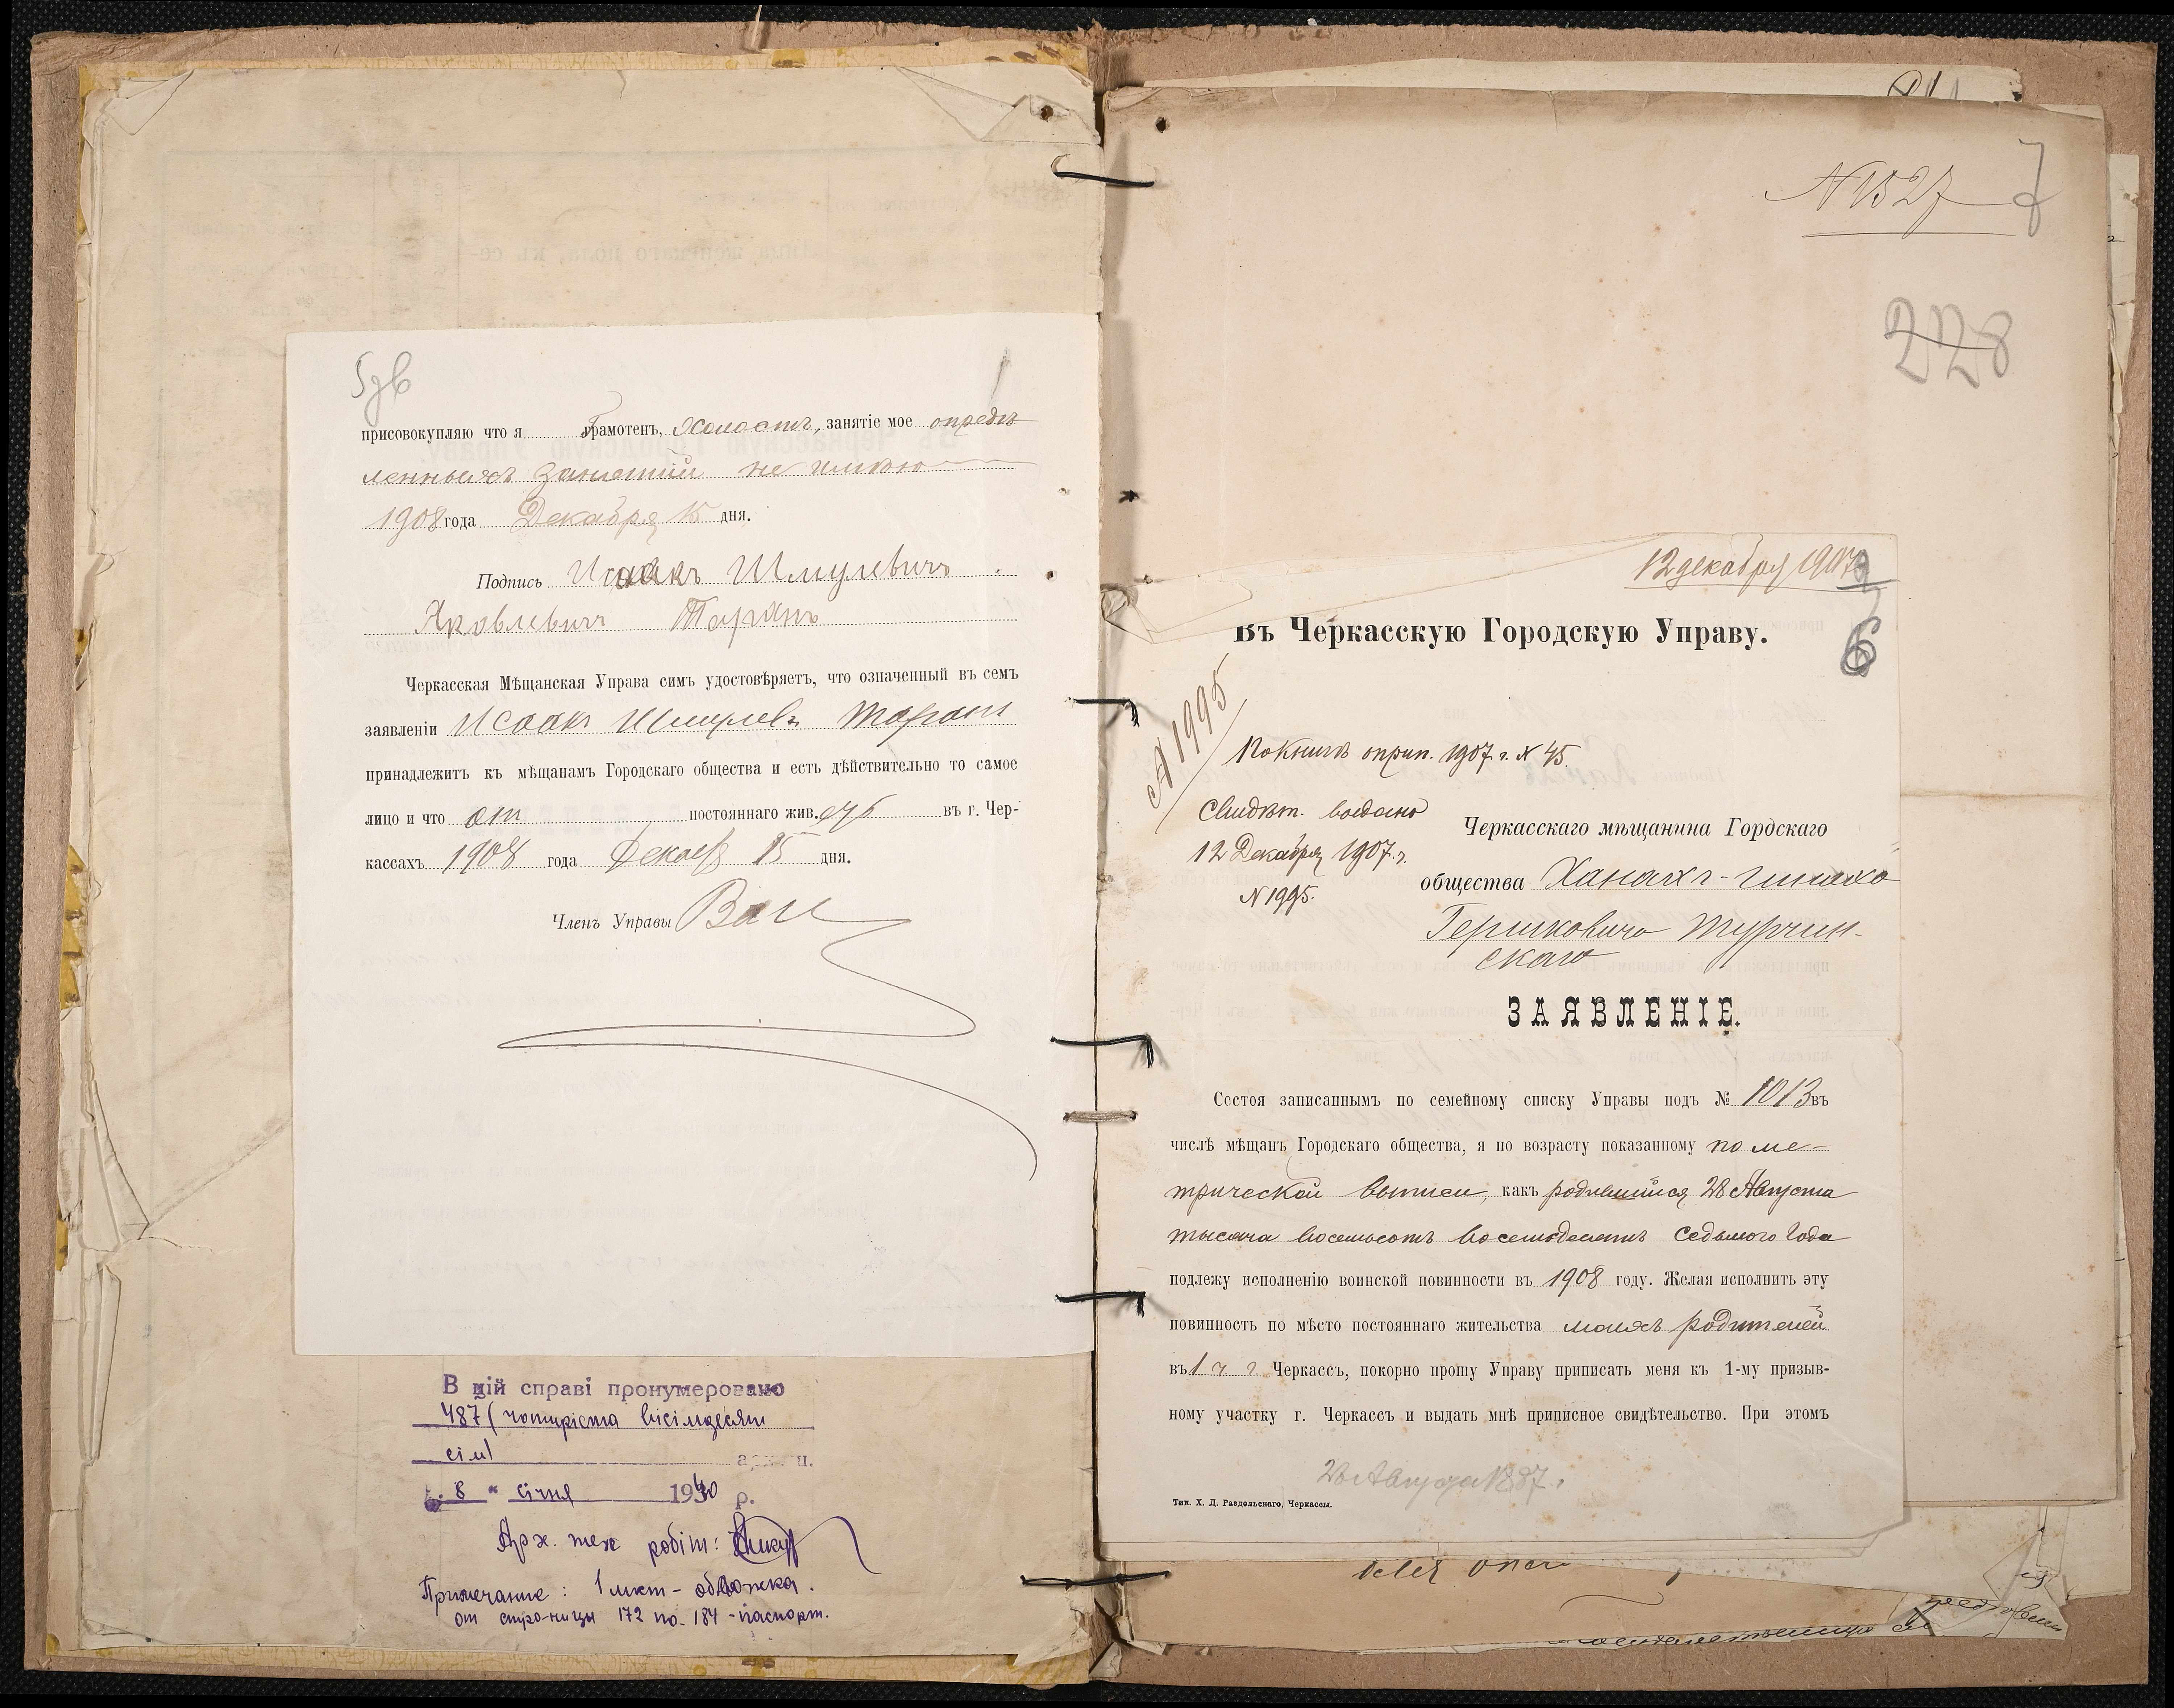 5зв
присовокупляю что я Грамотенъ, Холостъ, занятіе мое опредѣ
ленныхъ занятій не имѣю
1908 года Декабря 15 дня.
Подпись Исаакъ Шмулевичъ
Яковлевичъ Таранъ
Черкасская Мѣщанская Управа симъ удостовѣряетъ, что означенный въ семъ
заявленіи Исаакъ Шмулевъ Таранъ
принадлежитъ къ мѣщанамъ Городскаго общества и есть дѣйствительно то самое
лицо и что он постояннаго жив.етъ въ г. Чер-
кассахъ 1908 года Декабр 15 дня.
Членъ Управы
В цій справі пронумеровано
487 (чотиріста вісімдесят
сім)
арк. п.
" 8 " січня 1940 р.
Арх. тех робіт:
Примечание: 1 лист - обложка.
от страницы 172 по 184 - паспорт.
N 1527
7
228
12 декабря 1907
Въ Черкасскую Городскую Управу.
6
N 1995
По книгѣ опрып. 1907 г. N 45.
Свидѣт. выдано
12 Декабря 1907 г.
N 1995.
Черкасскаго мѣщанина Гордскаго
общества Ханаха-
Гершковича Турчин-
скаго
ЗАЯВЛЕНІЕ.
Состоя записаннымъ по семейному списку Управы подъ № 1013 въ
числѣ мѣщанъ Городскаго общества, я по возрасту показанному по ме-
трической выписи, какъ родившійся 28 Августа
тысяча восемьсотъ восемьдесятъ седьмого года
подлежу исполненію воинской повинности въ 1908 году. Желая исполнить эту
повинность по мѣсто постояннаго жительства моихъ родителей
въ 1 ч г. Черкассъ, покорно прошу Управу приписать меня къ 1-му призыв-
ному участку г. Черкассъ и выдать мнѣ приписное свидѣтельство. При этомъ
28 Августа 1887 г.
Тип. Х. Д. Раздольскаго, Черкассы.